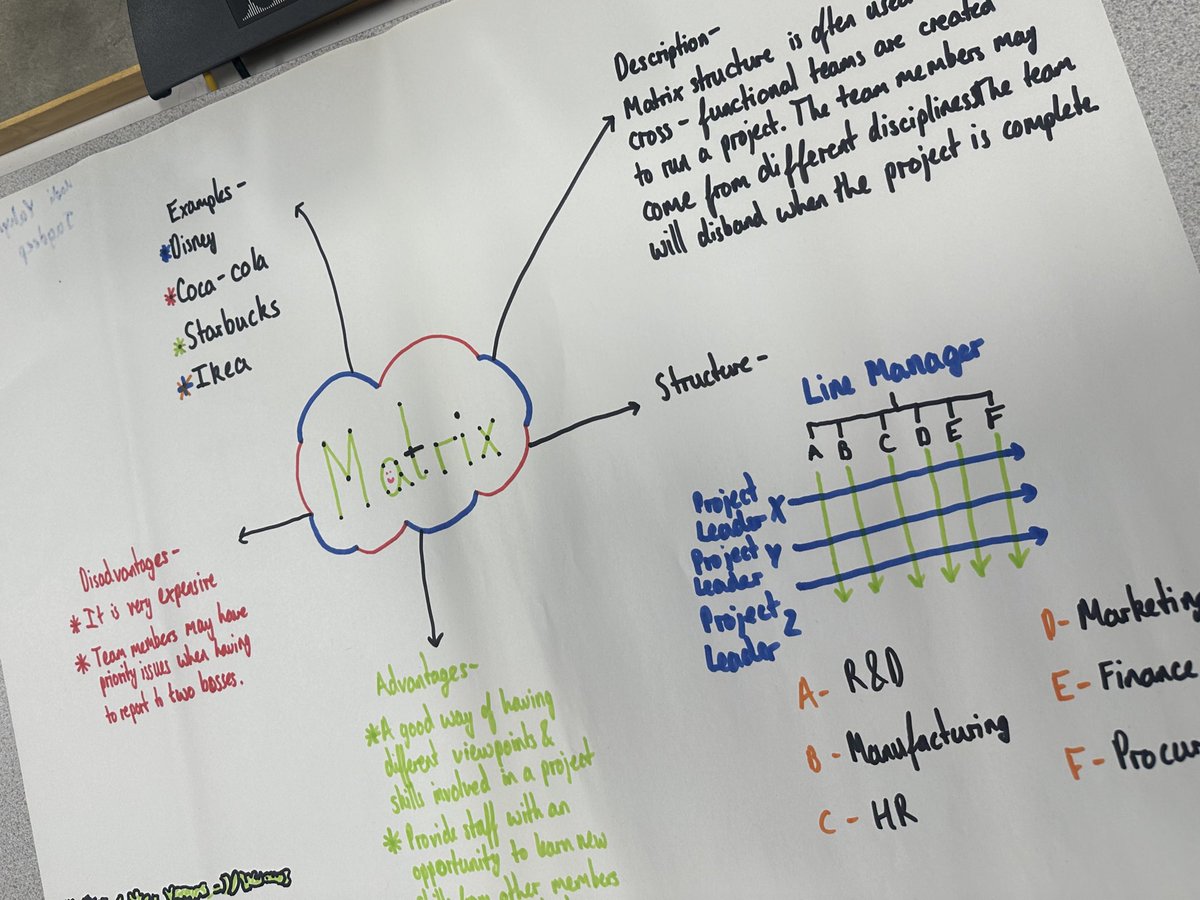 Matrix
Examples-
*Disney
*Coca-cola
*Starbucks
*Ikea
Description-
Matrix structure is often used
cross-functional teams are created
to run a project. The team members may
come from different disciplines. The team
will disband when the project is complete
Structure-
Line Manager
A B C D E F
Project
Leader X
Project Y
Leader
Project Z
Leader
A- R&D
B- Manufacturing
C- HR
D- Marketing
E- Finance
F-
Disadvantages-
* It is very expensive
* Team members may have
priority issues when having
to report to two bosses.
Advantages-
*A good way of having
different viewpoints &
skills involved in a project
* Provide staff with an
opportunity to learn new
skills from other members